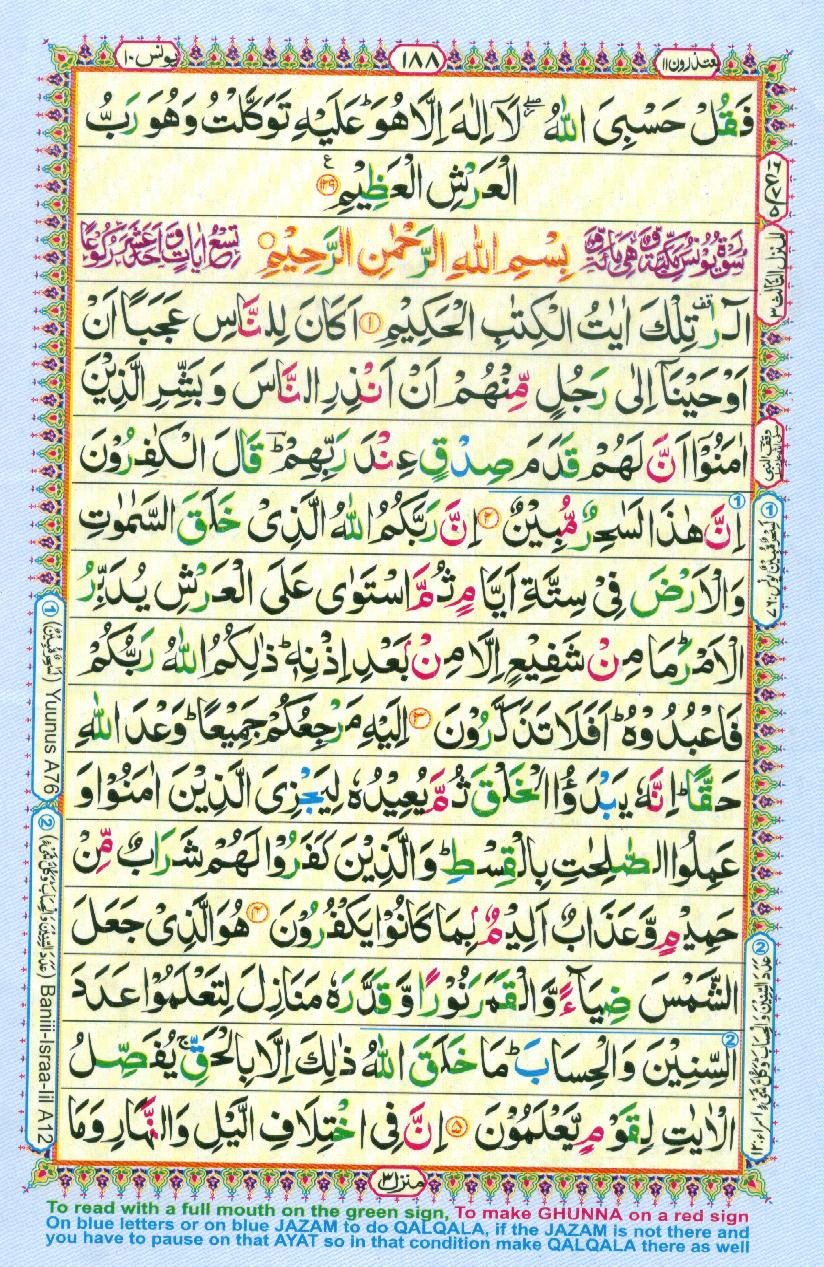 يعتذرون ١١
١٨٨
يونس ١٠
فَقُلْ حَسْبِيَ اللّٰهُ ۖ لَآ اِلٰهَ اِلَّا هُوَ ؕ عَلَيْهِ تَوَكَّلْتُ وَهُوَ رَبُّ
الْعَرْشِ الْعَظِيْمِ ۧ ﴿۱۲۹﴾
سُوْرَةُ يُوْنُسَ مَكِّيَّةٌ وَّهِىَ مِائَةٌ وَّ بِسْمِ اللّٰهِ الرَّحْمٰنِ الرَّحِيْمِ تِسْعُ اٰيَاتٍ وَّاَحَدَ عَشَرَ رُكُوْعًا
الٓرٰ ۟ تِلْكَ اٰيٰتُ الْكِتٰبِ الْحَكِيْمِ ﴿۱﴾ اَكَانَ لِلنَّاسِ عَجَبًا اَنْ
اَوْحَيْنَآ اِلٰى رَجُلٍ مِّنْهُمْ اَنْ اَنْذِرِ النَّاسَ وَبَشِّرِ الَّذِيْنَ
اٰمَنُوْٓا اَنَّ لَهُمْ قَدَمَ صِدْقٍ عِنْدَ رَبِّهِمْ ؕ قَالَ الْكٰفِرُوْنَ
اِنَّ هٰذَا لَسٰحِرٌ مُّبِيْنٌ ﴿۲﴾ اِنَّ رَبَّكُمُ اللّٰهُ الَّذِىْ خَلَقَ السَّمٰوٰتِ
وَالْاَرْضَ فِىْ سِتَّةِ اَيَّامٍ ثُمَّ اسْتَوٰى عَلَى الْعَرْشِ يُدَبِّرُ
الْاَمْرَ ؕ مَا مِنْ شَفِيْعٍ اِلَّا مِنْۢ بَعْدِ اِذْنِهٖ ؕ ذٰلِكُمُ اللّٰهُ رَبُّكُمْ
فَاعْبُدُوْهُ ؕ اَفَلَا تَذَكَّرُوْنَ ﴿۳﴾ اِلَيْهِ مَرْجِعُكُمْ جَمِيْعًا ؕ وَعْدَ اللّٰهِ
حَقًّا ؕ اِنَّهٗ يَبْدَؤُا الْخَلْقَ ثُمَّ يُعِيْدُهٗ لِيَجْزِىَ الَّذِيْنَ اٰمَنُوْا وَ
عَمِلُوا الصّٰلِحٰتِ بِالْقِسْطِ ؕ وَالَّذِيْنَ كَفَرُوْا لَهُمْ شَرَابٌ مِّنْ
حَمِيْمٍ وَّعَذَابٌ اَلِيْمٌۢ بِمَا كَانُوْا يَكْفُرُوْنَ ﴿۴﴾ هُوَ الَّذِىْ جَعَلَ
الشَّمْسَ ضِيَآءً وَّالْقَمَرَ نُوْرًا وَّقَدَّرَهٗ مَنَازِلَ لِتَعْلَمُوْا عَدَدَ
السِّنِيْنَ وَالْحِسَابَ ؕ مَا خَلَقَ اللّٰهُ ذٰلِكَ اِلَّا بِالْحَقِّ ۚ يُفَصِّلُ
الْاٰيٰتِ لِقَوْمٍ يَّعْلَمُوْنَ ﴿۵﴾ اِنَّ فِى اخْتِلَافِ الَّيْلِ وَالنَّهَارِ وَمَا
المنزل الثالث ٣
وقف النبی
① لَسِحْرٌ مُّبِيْنٌ یونس: ٧٦
① (لَسِحْرٌ مُّبِيْنٌ) Yuumus A76
② (عَدَدَ السِّنِيْنَ وَالْحِسَابَ وَكُلَّ شَىْءٍ) Baniii-Israa-Iil A12
② عَدَدَ السِّنِيْنَ وَالْحِسَابَ وَكُلَّ شَىْءٍ اسراء: ١٢
منزل ٣
To read with a full mouth on the green sign, To make GHUNNA on a red sign
On blue letters or on blue JAZAM to do QALQALA, if the JAZAM is not there and
you have to pause on that AYAT so in that condition make QALQALA there as well